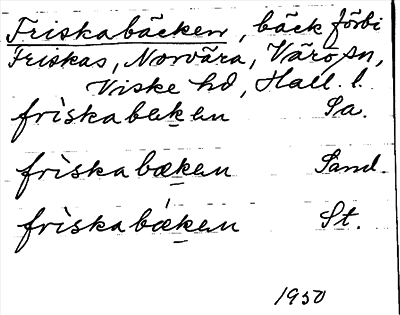 Friskabäcken, bäck förbi
Friskas, Norvära, Värö sn,
Viske hd, Hall. l.
frìskabäkan Sa.
frìskabækan Sand.
frìskabǽkan St.
1950